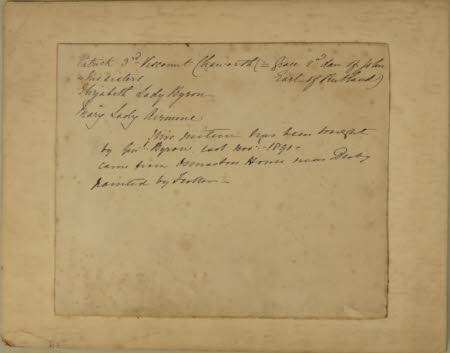 Patrick 3rd Viscount Chaworth (= Grace 2nd dau of John
Earl of Rutland)
His sisters
Elizabeth Lady Byron
Mary Lady Armine
This picture has been bought
by Genl. Byron last Novr. 1890.
came from Osmaston House near Derby
painted by